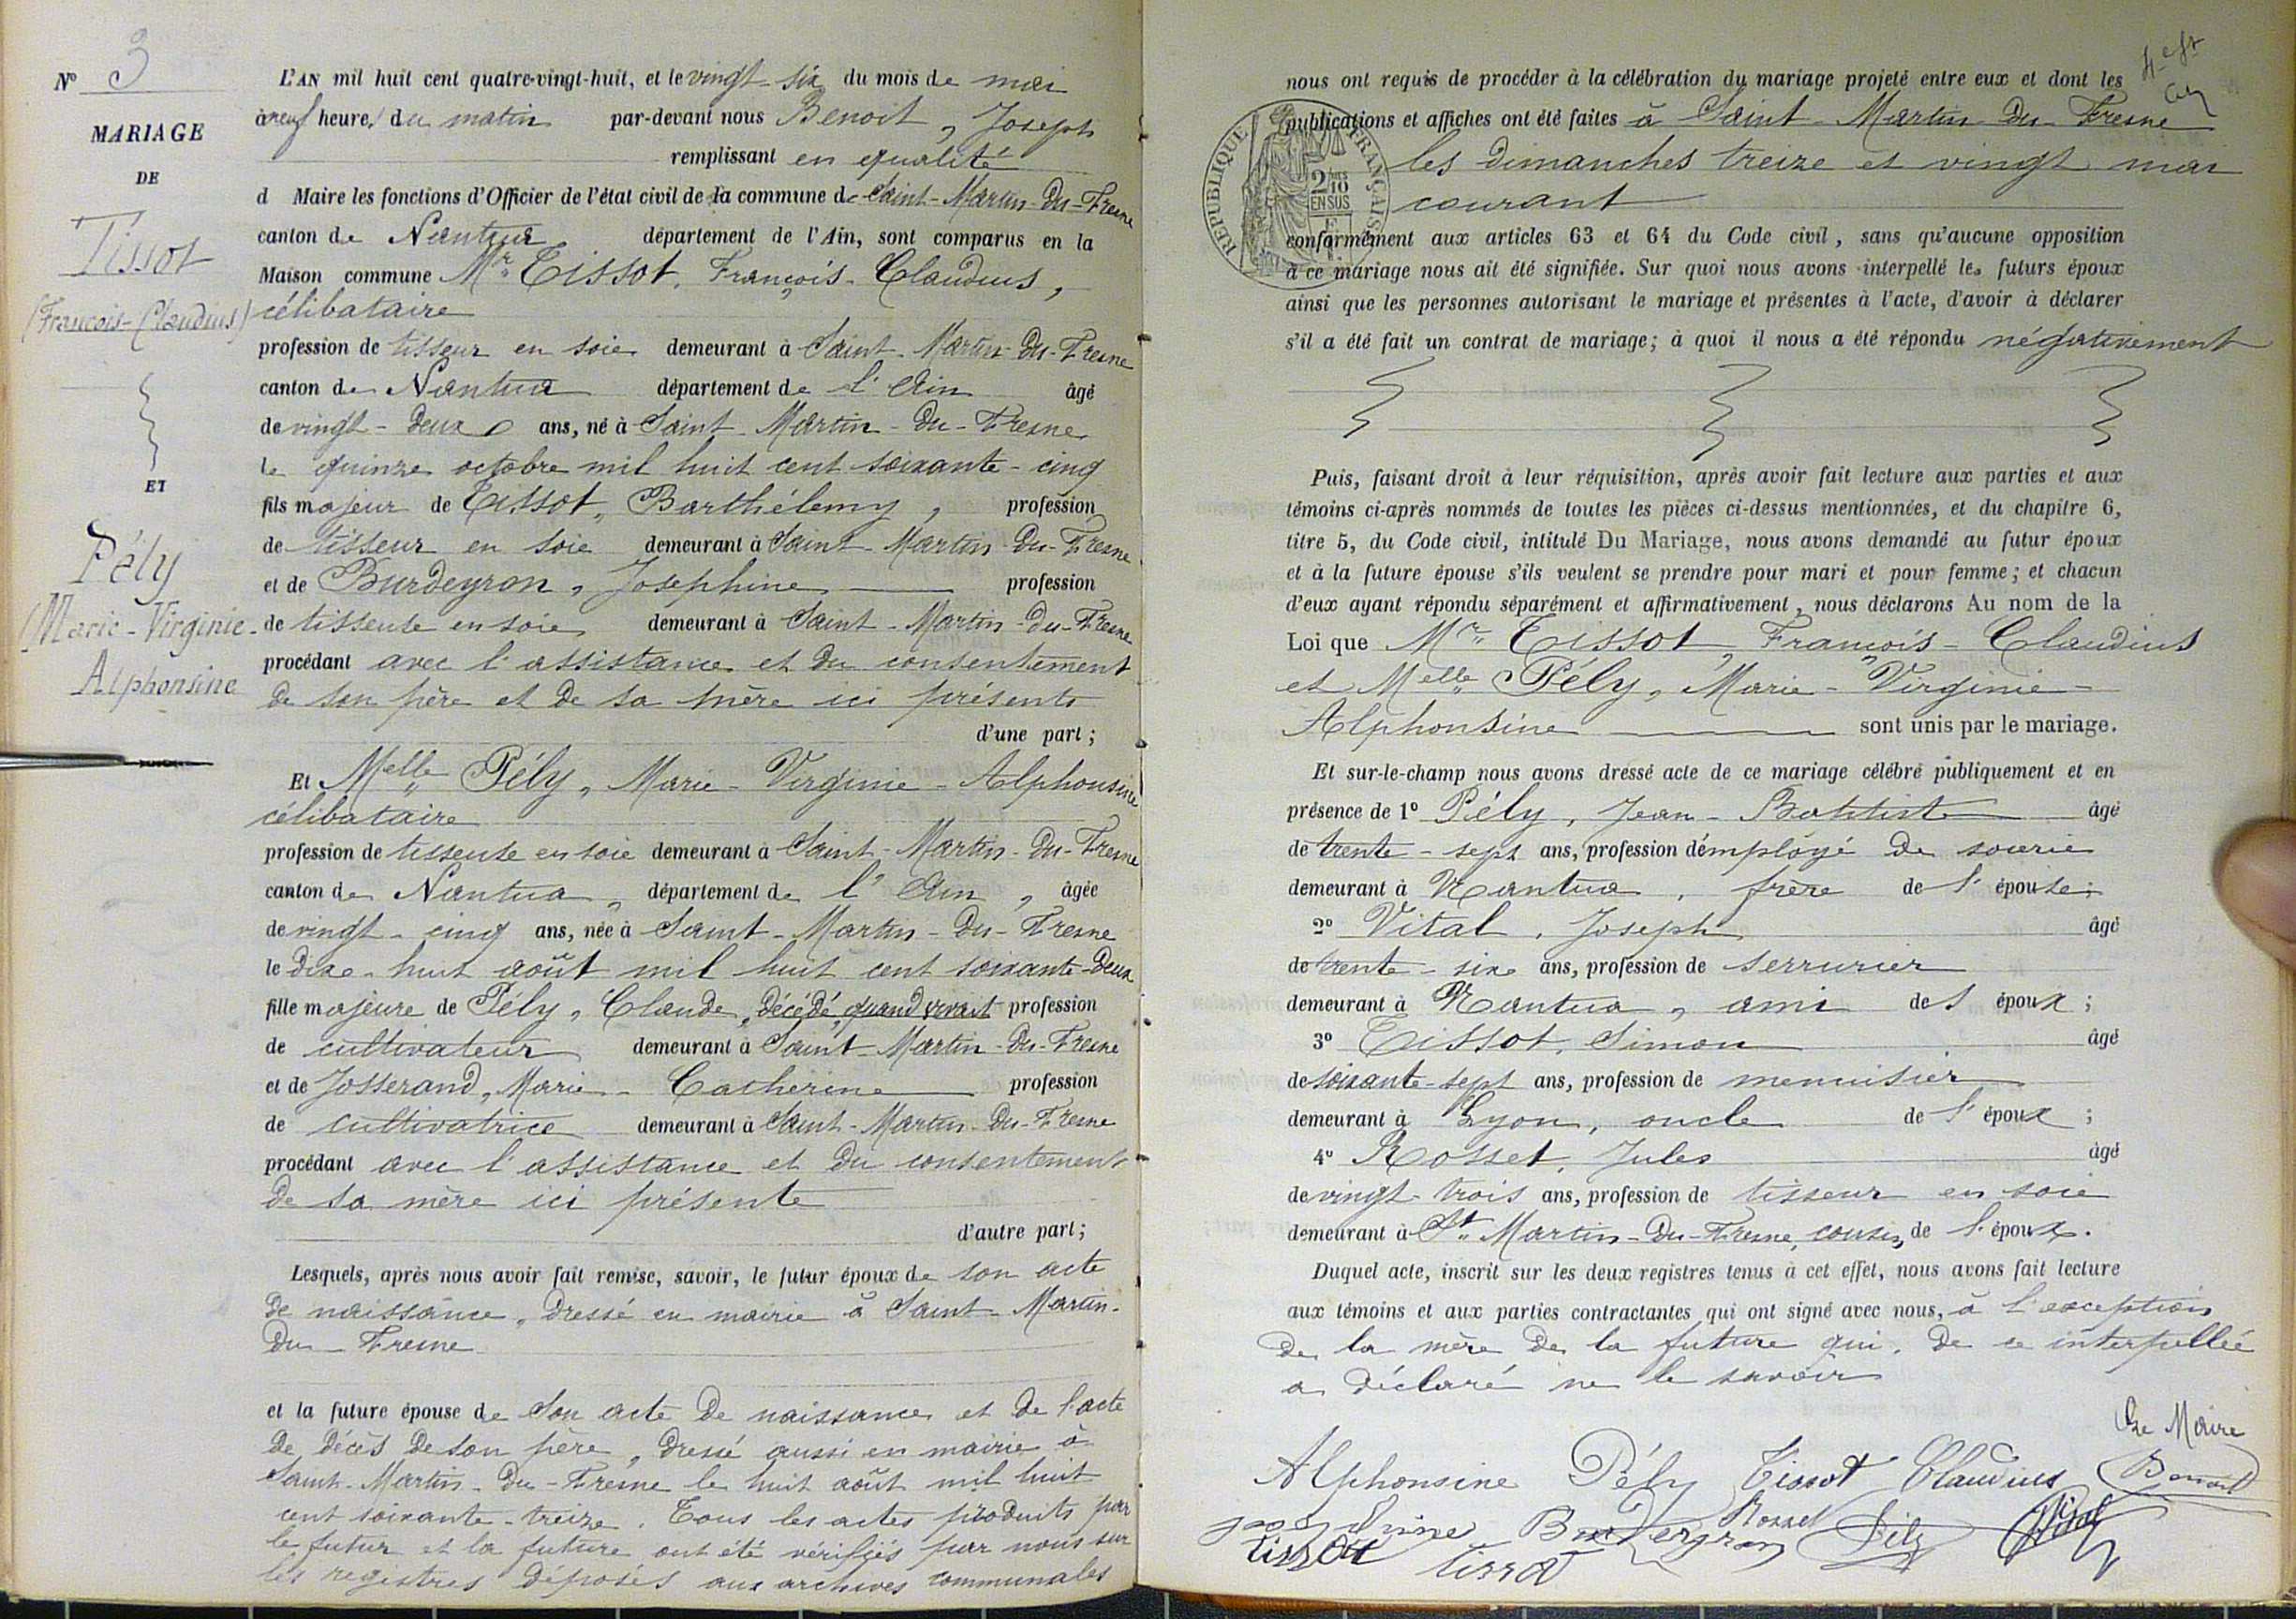 N° 3
MARIAGE
DE
Tissot
(François-Claudius)
ET
Pély
(Marie-Virginie-
Alphonsine
L'AN mil huit cent quatre-vingt-huit, et le vingt-six du mois de mai
à neuf heures du matin par-devant nous Benoit, Joseph
remplissant en qualité
d Maire les fonctions d'Officier de l'état civil de la commune de Saint-Martin-du-Fresne
canton de Nantua département de l'Ain, sont comparus en la
Maison commune Mr Tissot, François-Claudius,
célibataire
profession de tisseur en soie demeurant à Saint-Martin-du-Fresne
canton de Nantua département de l'Ain âgé
de vingt-deux ans, né à Saint-Martin-du-Fresne
le quinze octobre mil huit cent soixante-cinq
fils majeur de Tissot, Barthélemy, profession
de tisseur en soie demeurant à Saint-Martin-du-Fresne
et de Burdeyron, Josephine profession
de tisseuse en soie demeurant à Saint-Martin-du-Fresne
procédant avec l'assistance et du consentement
de son père et de sa mère ici présents
d'une part;
Et Melle Pély, Marie-Virginie-Alphonsine
célibataire
profession de tisseuse en soie demeurant à Saint-Martin-du-Fresne
canton de Nantua, département de l'Ain, âgée
de vingt-cinq ans, née à Saint-Martin-du-Fresne
le dix-huit août mil huit cent soixante-deux
fille majeure de Pély, Claude, décédé, quand vivait profession
de cultivateur demeurant à Saint-Martin-du-Fresne
et de Josserand, Marie-Catherine profession
de cultivatrice demeurant à Saint-Martin-du-Fresne
procédant avec l'assistance et du consentement
de sa mère ici présente
d'autre part;
Lesquels, après nous avoir fait remise, savoir, le futur époux de son acte
de naissance, dressé en mairie à Saint-Martin-
du-Fresne
et la future épouse de son acte de naissance et de l'acte
de décès de son père, dressé aussi en mairie à
Saint-Martin-du-Fresne le huit août mil huit
cent soixante-treize. Tous les actes produits par
le futur et la future ont été vérifiés par nous sur
les registres déposés aux archives communales
nous ont requis de procéder à la célébration du mariage projeté entre eux et dont les
publications et affiches ont été faites à Saint-Martin-du-Fresne
les dimanches treize et vingt mai
courant
RÉPUBLIQUE FRANÇAISE
2/10 EN SUS
conformément aux articles 63 et 64 du Code civil, sans qu'aucune opposition
à ce mariage nous ait été signifiée. Sur quoi nous avons interpellé les futurs époux
ainsi que les personnes autorisant le mariage et présentes à l'acte, d'avoir à déclarer
s'il a été fait un contrat de mariage; à quoi il nous a été répondu négativement
Puis, faisant droit à leur réquisition, après avoir fait lecture aux parties et aux
témoins ci-après nommés de toutes les pièces ci-dessus mentionnées, et du chapitre 6,
titre 5, du Code civil, intitulé Du Mariage, nous avons demandé au futur époux
et à la future épouse s'ils veulent se prendre pour mari et pour femme; et chacun
d'eux ayant répondu séparément et affirmativement, nous déclarons Au nom de la
Loi que Mr Tissot, François-Claudius
et Melle Pély, Marie-Virginie-
Alphonsine sont unis par le mariage.
Et sur-le-champ nous avons dressé acte de ce mariage célébré publiquement et en
présence de 1° Pély, Jean-Batiste âgé
de trente-sept ans, profession d'employé de scierie
demeurant à Nantua, frère de l'épouse;
2° Vital, Joseph âgé
de trente-six ans, profession de serrurier
demeurant à Nantua, ami de l'époux;
3° Tissot, Simon âgé
de soixante-sept ans, profession de menuisier
demeurant à Lyon, oncle de l'époux;
4° Rosset, Jules âgé
de vingt-trois ans, profession de tisseur en soie
demeurant à St Martin-du-Fresne, cousin de l'époux.
Duquel acte, inscrit sur les deux registres tenus à cet effet, nous avons fait lecture
aux témoins et aux parties contractantes qui ont signé avec nous, à l'exception
de la mère de la future qui, de ce interpellée
a déclaré ne le savoir
Le Maire
Alphonsine Pély Tissot Claudius Benoit
Josephine Burdeyron Rosset Pély Vital
tissot tissot